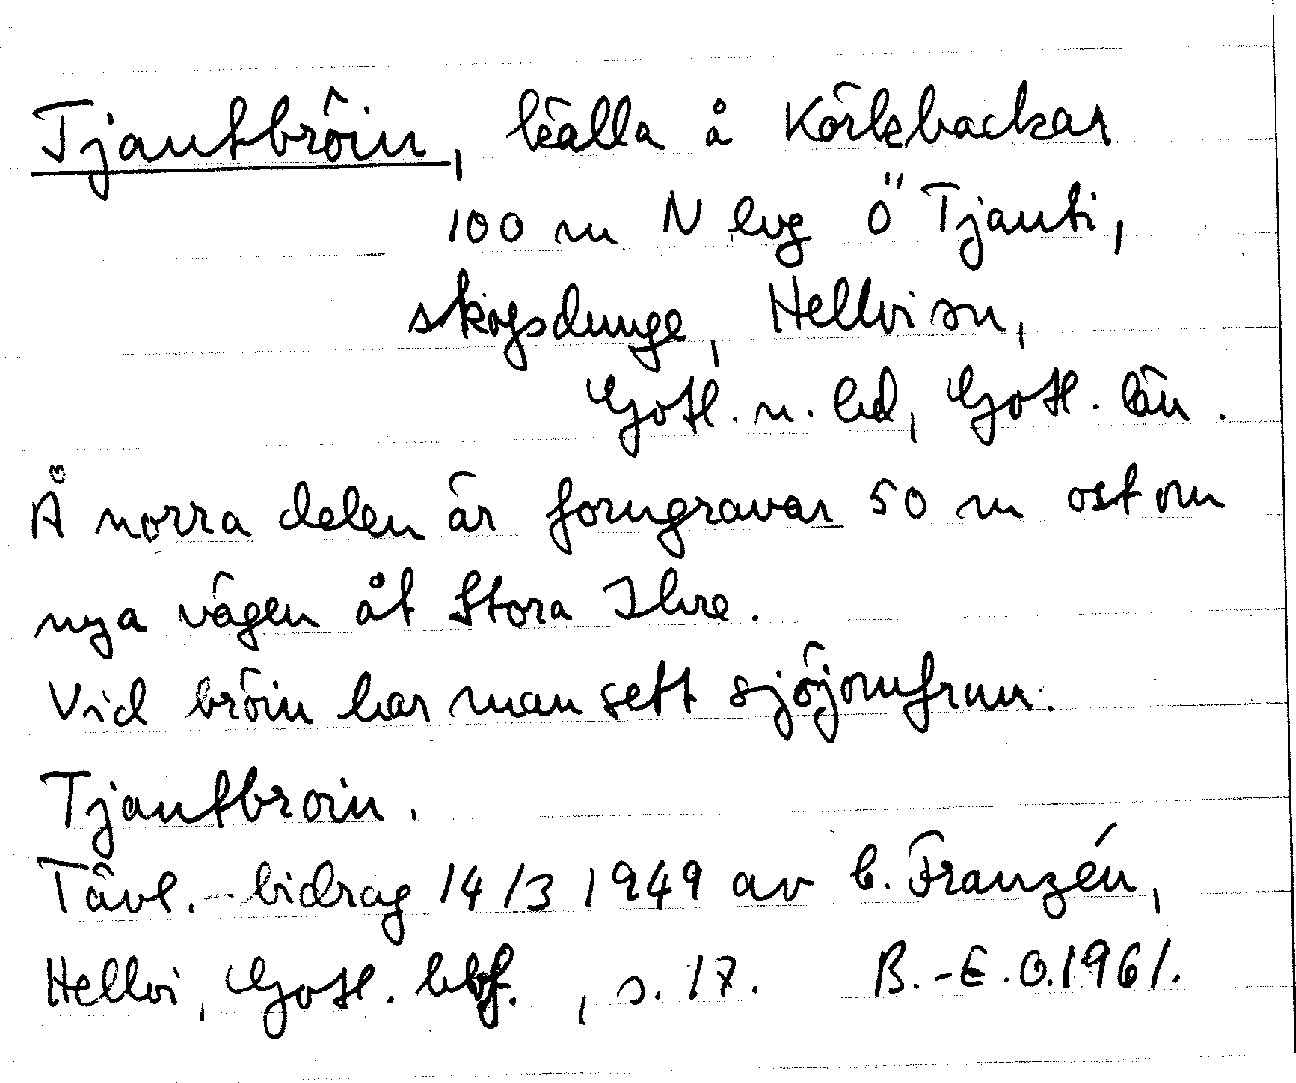 Tjautbröin, källa å Körkbackar
100 m N lvg Ö Tjauti,
skogsdunge, Hellvi sn,
Gotl. n. hd, Gotl. län.
Å norra delen är forngravar 50 m ost om
nya vägen åt Stora Ihre.
Vid bröin har man sett sjöjomfrun.
Tjautbroin.
Tävl.-bidrag 14/3 1949 av b. Franzén,
Hellvi, Gotl. hbf., s. 17. B.-E.O.1961.